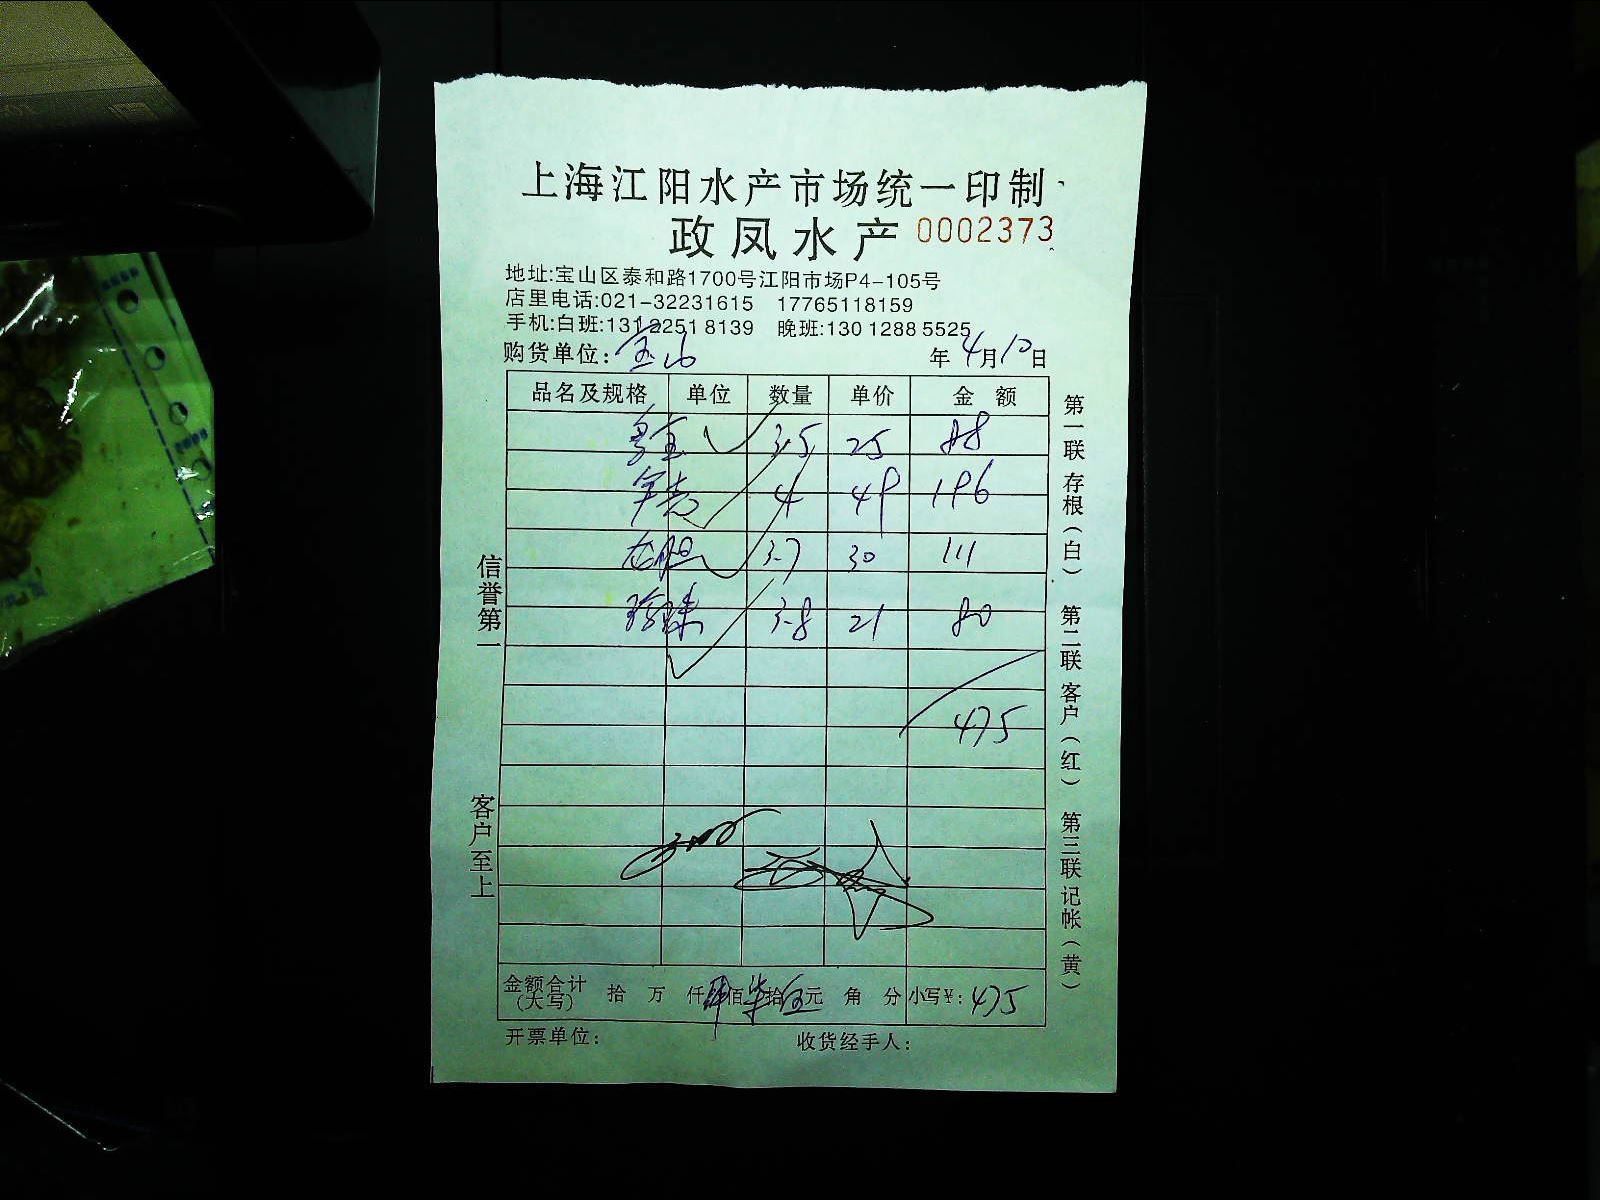 上海江阳水产市场统一印制
政凤水产 0002373
地址:宝山区泰和路1700号江阳市场P4-105号
店里电话:021-32231615 17765118159
手机:白班:131 2251 8139 晚班:130 1288 5525
购货单位: 宝山 年 4月10日
品名及规格 单位 数量 单价 金额
3.5 25 88
4 49 196
龙胆 3.7 30 111
珍珠 3.8 21 80
475
金额合计(大写) 拾 万 仟 肆佰 柒拾 伍元 角 分 小写¥: 475
开票单位: 收货经手人:
信誉第一
客户至上
第一联 存根(白) 第二联 客户(红) 第三联 记帐(黄)